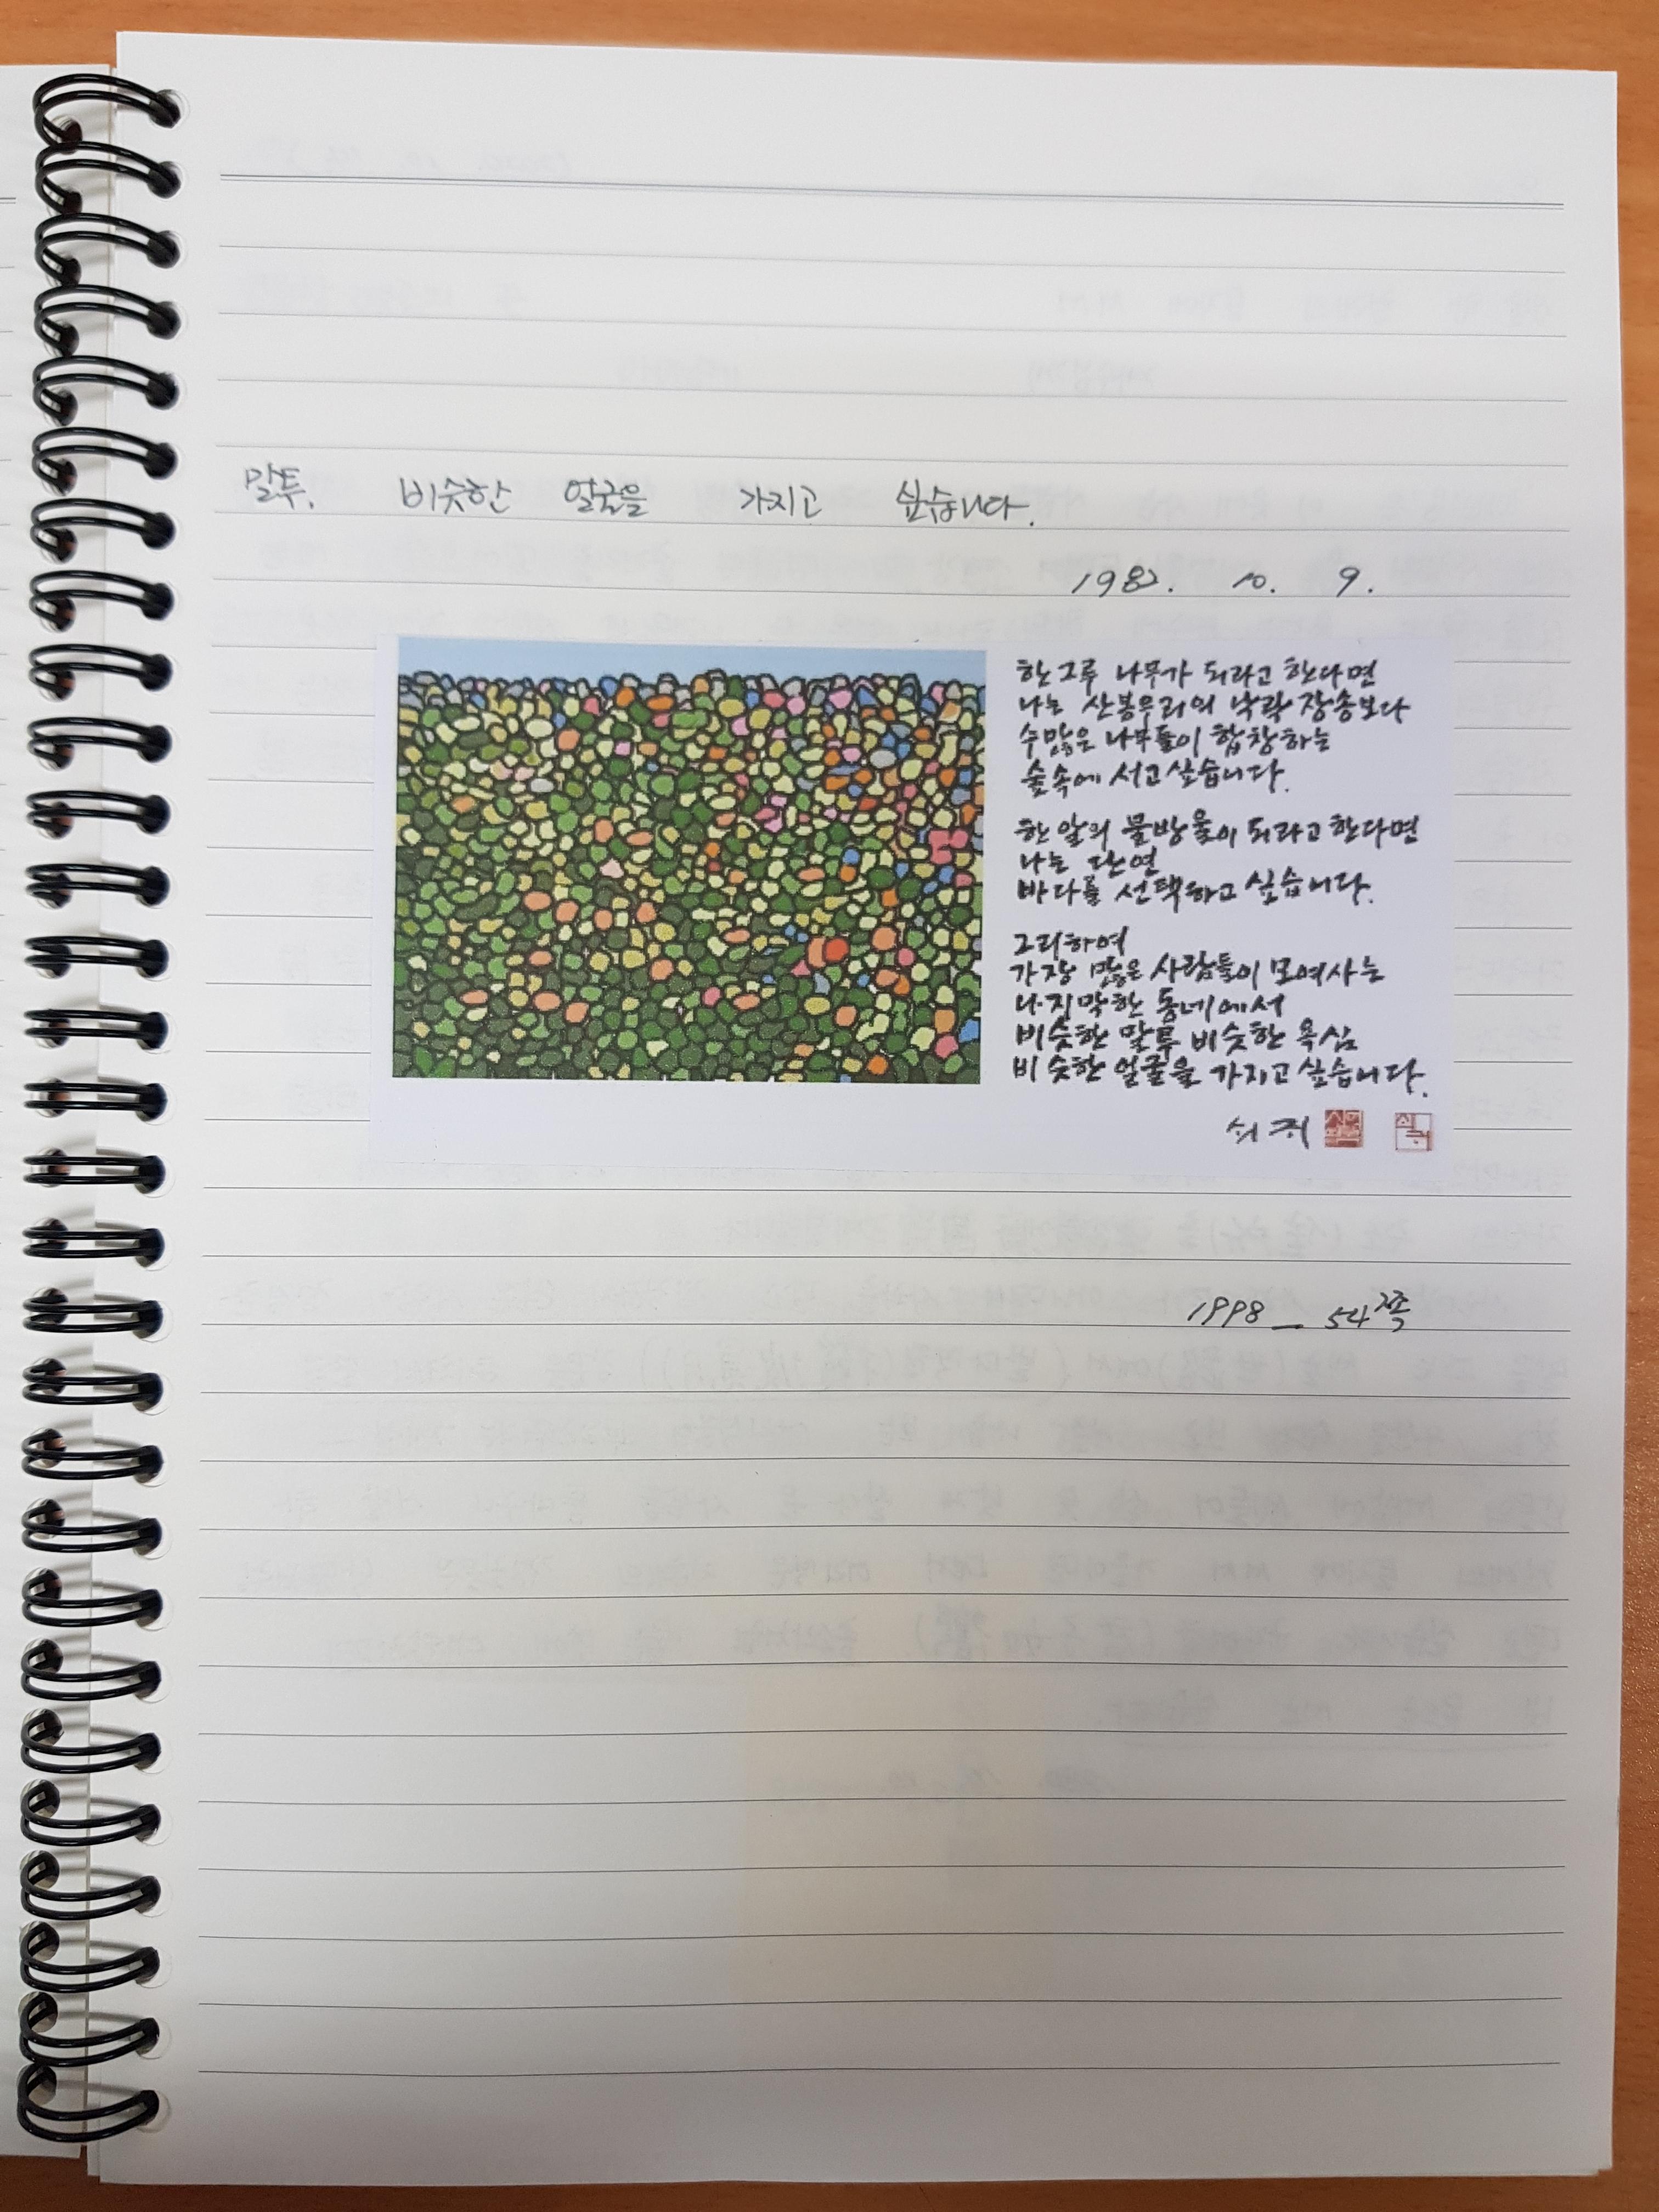 말투, 비슷한 얼굴을 가지고 싶습니다.
1982. 10. 9.
한 그루 나무가 되라고 한다면
나는 산봉우리의 낙락장송보다
수많은 나무들이 합창하는
숲속에 서고 싶습니다.
한 알의 물방울이 되라고 한다면
나는 단연
바다를 선택하고 싶습니다.
그리하여
가장 많은 사람들이 모여사는
나지막한 동네에서
비슷한 말투 비슷한 욕심
비슷한 얼굴을 가지고 싶습니다.
쇠귀
1998_ 54쪽